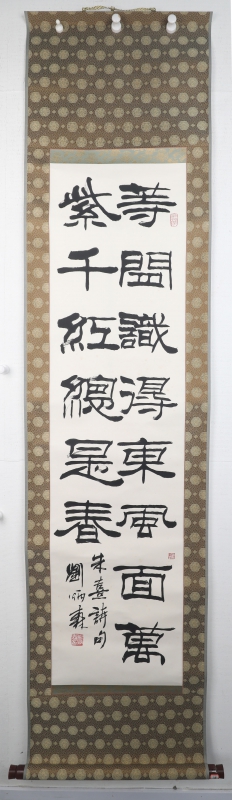 等閒識得東風面萬
紫千紅總是春
朱熹詩句
劉炳森